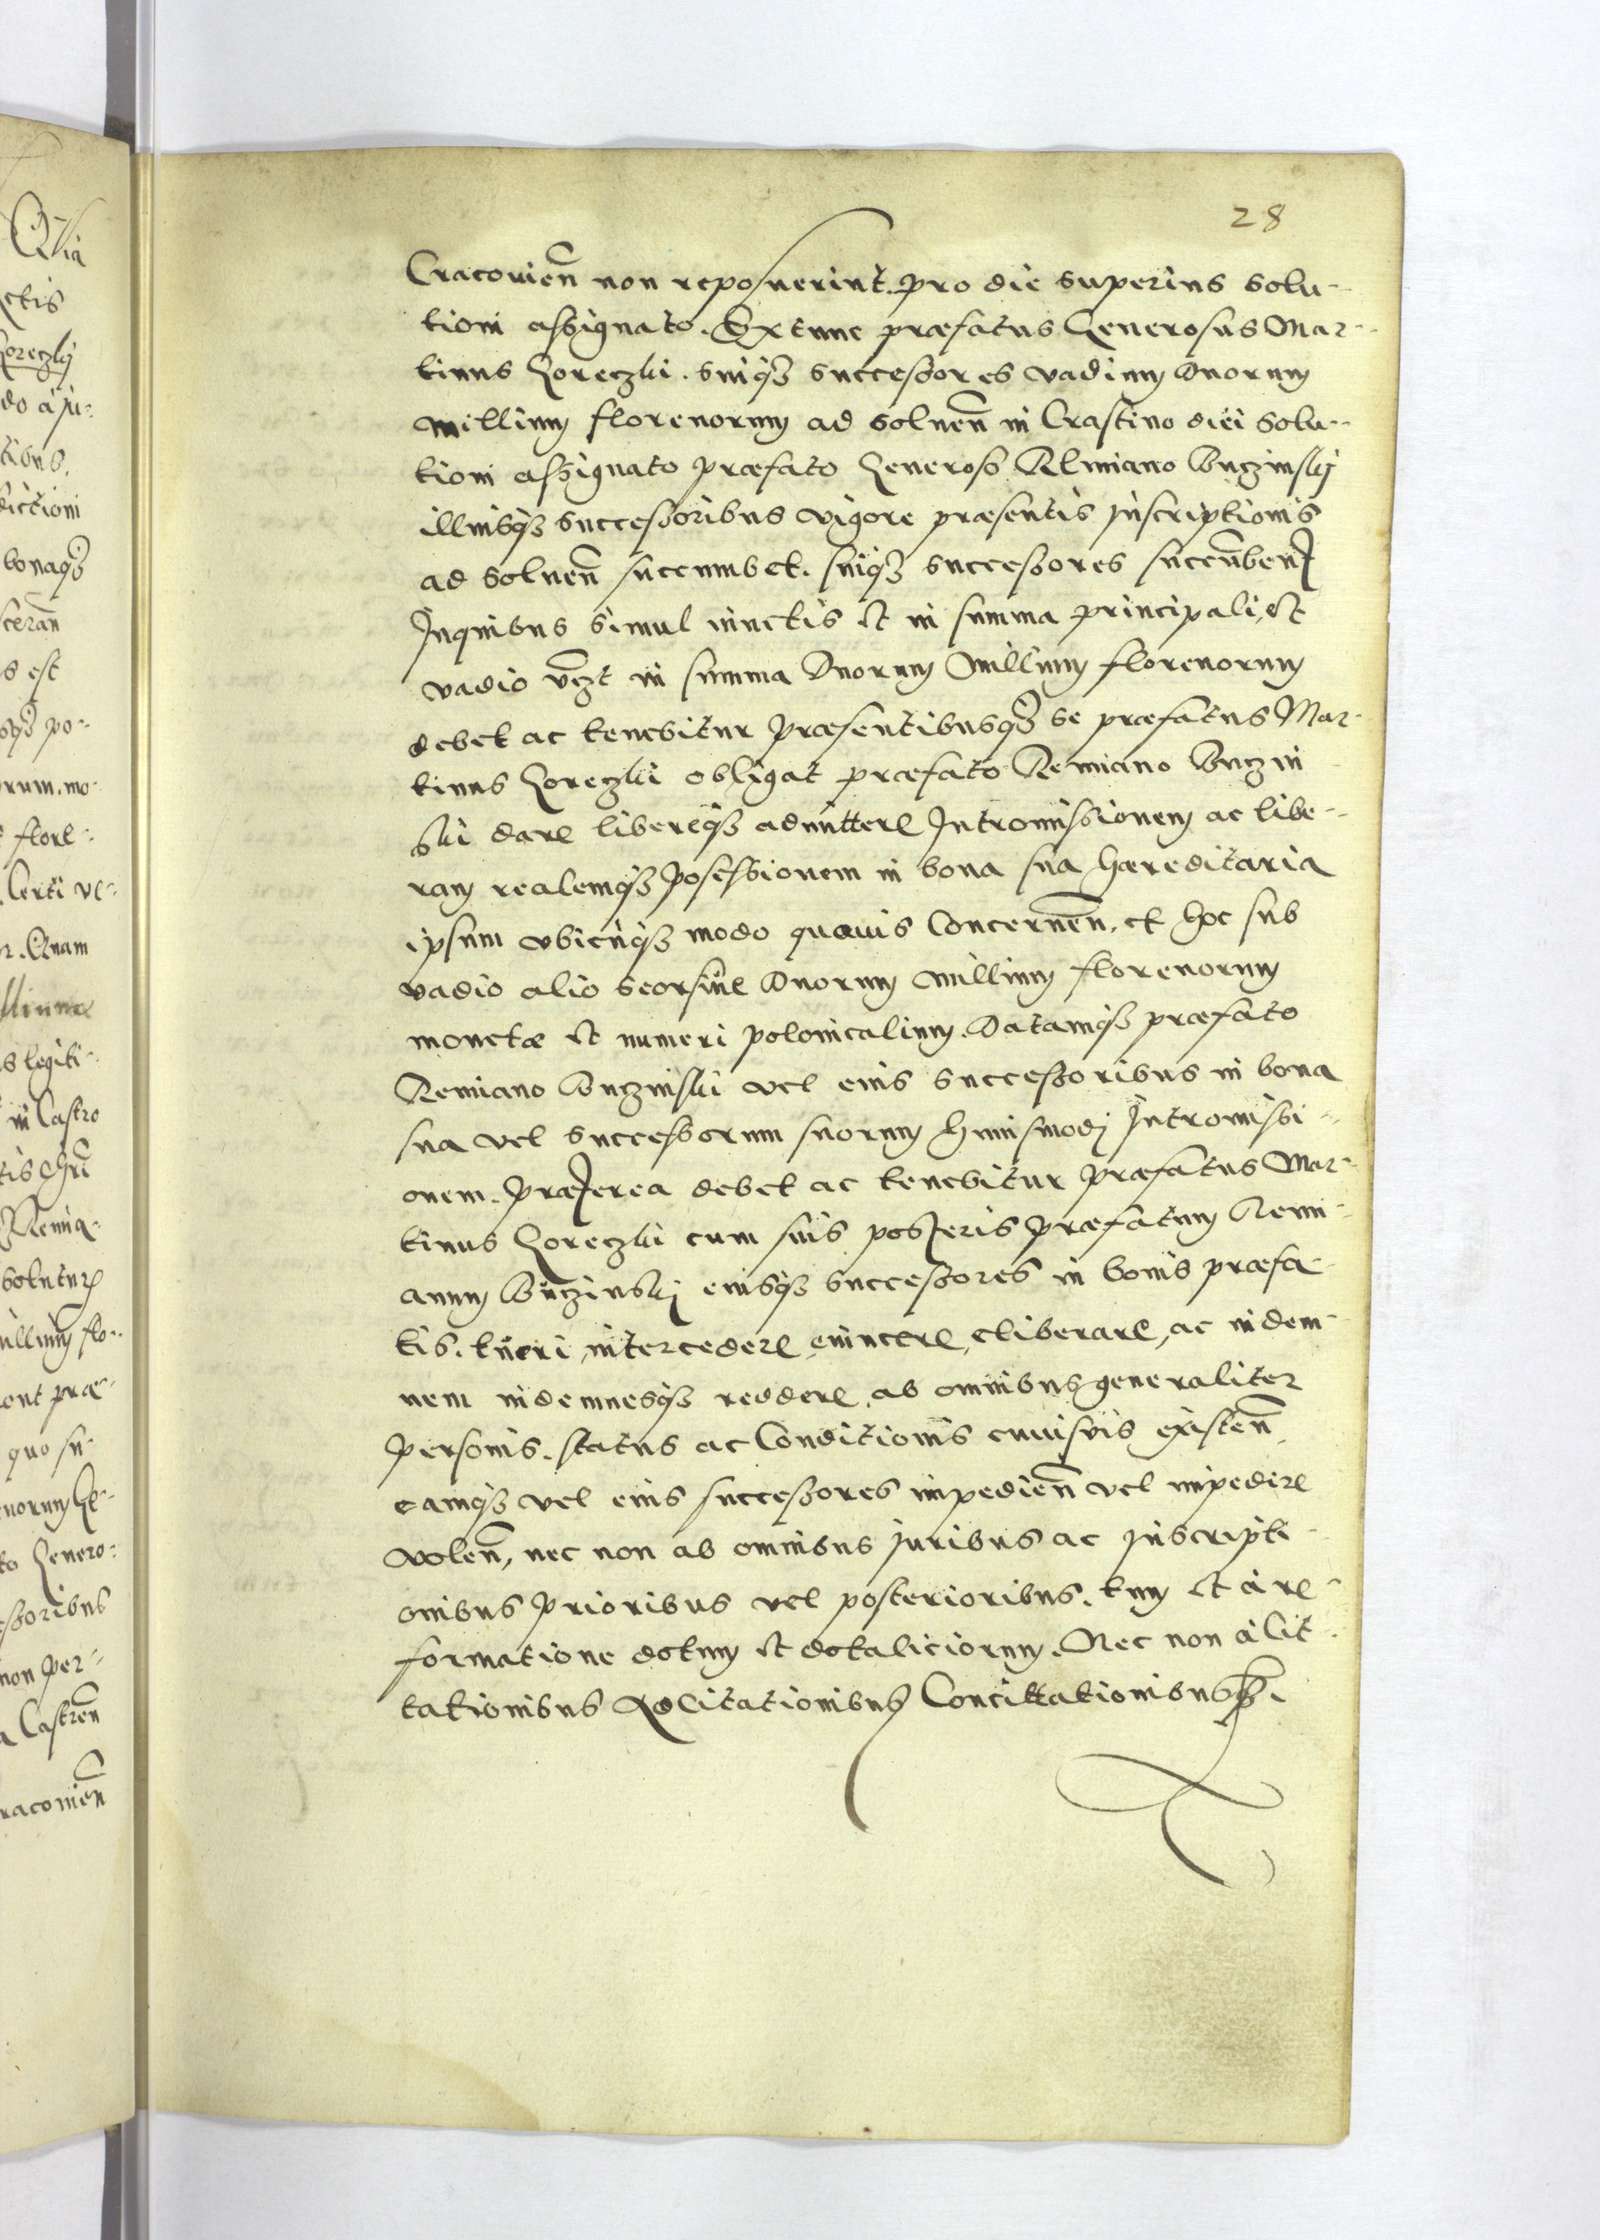 28
Cracouien̄ non reposuerint. pro die superius solu-
tioni assignato. Extunc præfatus Generosus Mar-
tinus Goreczki. suiqȝ successores vadium duorum
millium florenorum ad soluen̄ in Crastino diei solu-
tioni assignato præfato Generoso Remiano Buczinskij
illiusqȝ successoribus vigore præsentis Inscriptionis
ad soluen̄ succumbet. suiqȝ successores succūbent
Inquibus simul iunctis et in summa principali, et
vadio vȥt in summa duorum Millium florenorum
debet ac tenebitur præsentibusqȝ se præfatus Mar-
tinus Goreczki obligat præfato Remiano Buczin
ski dare libereqȝ admittere Intromissionem ac libe-
ram realemqȝ possessionem in bona sua hæreditaria
ipsum vbicūqȝ modo quouis concernen̄. et hoc sub
vadio alio seorsiue duorum millium florenorum
monetæ et numeri polonicalium. Datamqȝ præfato
Remiano Buczinski vel eius successoribus in bona
sua vel successorum suorum huiusmodj Intromissi-
onem. Præterea debet ac tenebitur præfatus Mar-
tinus Goreczki cum suis posteris præfatum Remi-
anum Buczinskj eiusqȝ successores in bonis præfa-
tis. tueri, intercedere, euincere, eliberare, ac indem-
nem indemnesqȝ reddere, ab omnibus generaliter
personis. status ac Conditionis cuiusuis existen̄
eamqȝ vel eius successores impedien̄ vel impedire
volen̄, nec non ab omnibus Juribus ac Inscripti-
onibus prioribus vel posterioribus. tum et à re-
formatione dotum et dotaliciorum. Nec non à Cit-
tationibus Adcitationibus Concittationibus